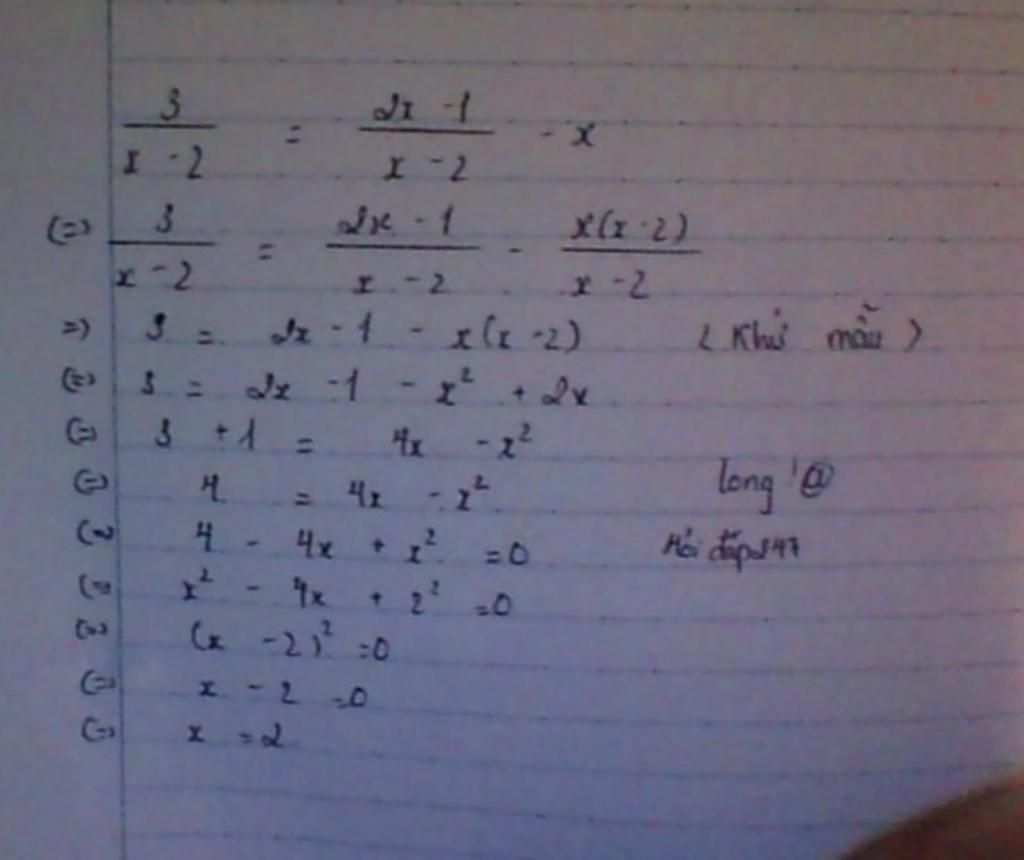 3/(x - 2) = (2x - 1)/(x - 2) - x
(=) 3/(x - 2) = (2x - 1)/(x - 2) - x(x - 2)/(x - 2)
=) 3 = 2x - 1 - x(x - 2) (Khử mẫu)
(=) 3 = 2x - 1 - x² + 2x
(=) 3 + 1 = 4x - x²
(=) 4 = 4x - x²
long '@
(=) 4 - 4x + x² = 0
Hỏi đáp 247
(=) x² - 4x + 2² = 0
(=) (x - 2)² = 0
(=) x - 2 = 0
(=) x = 2